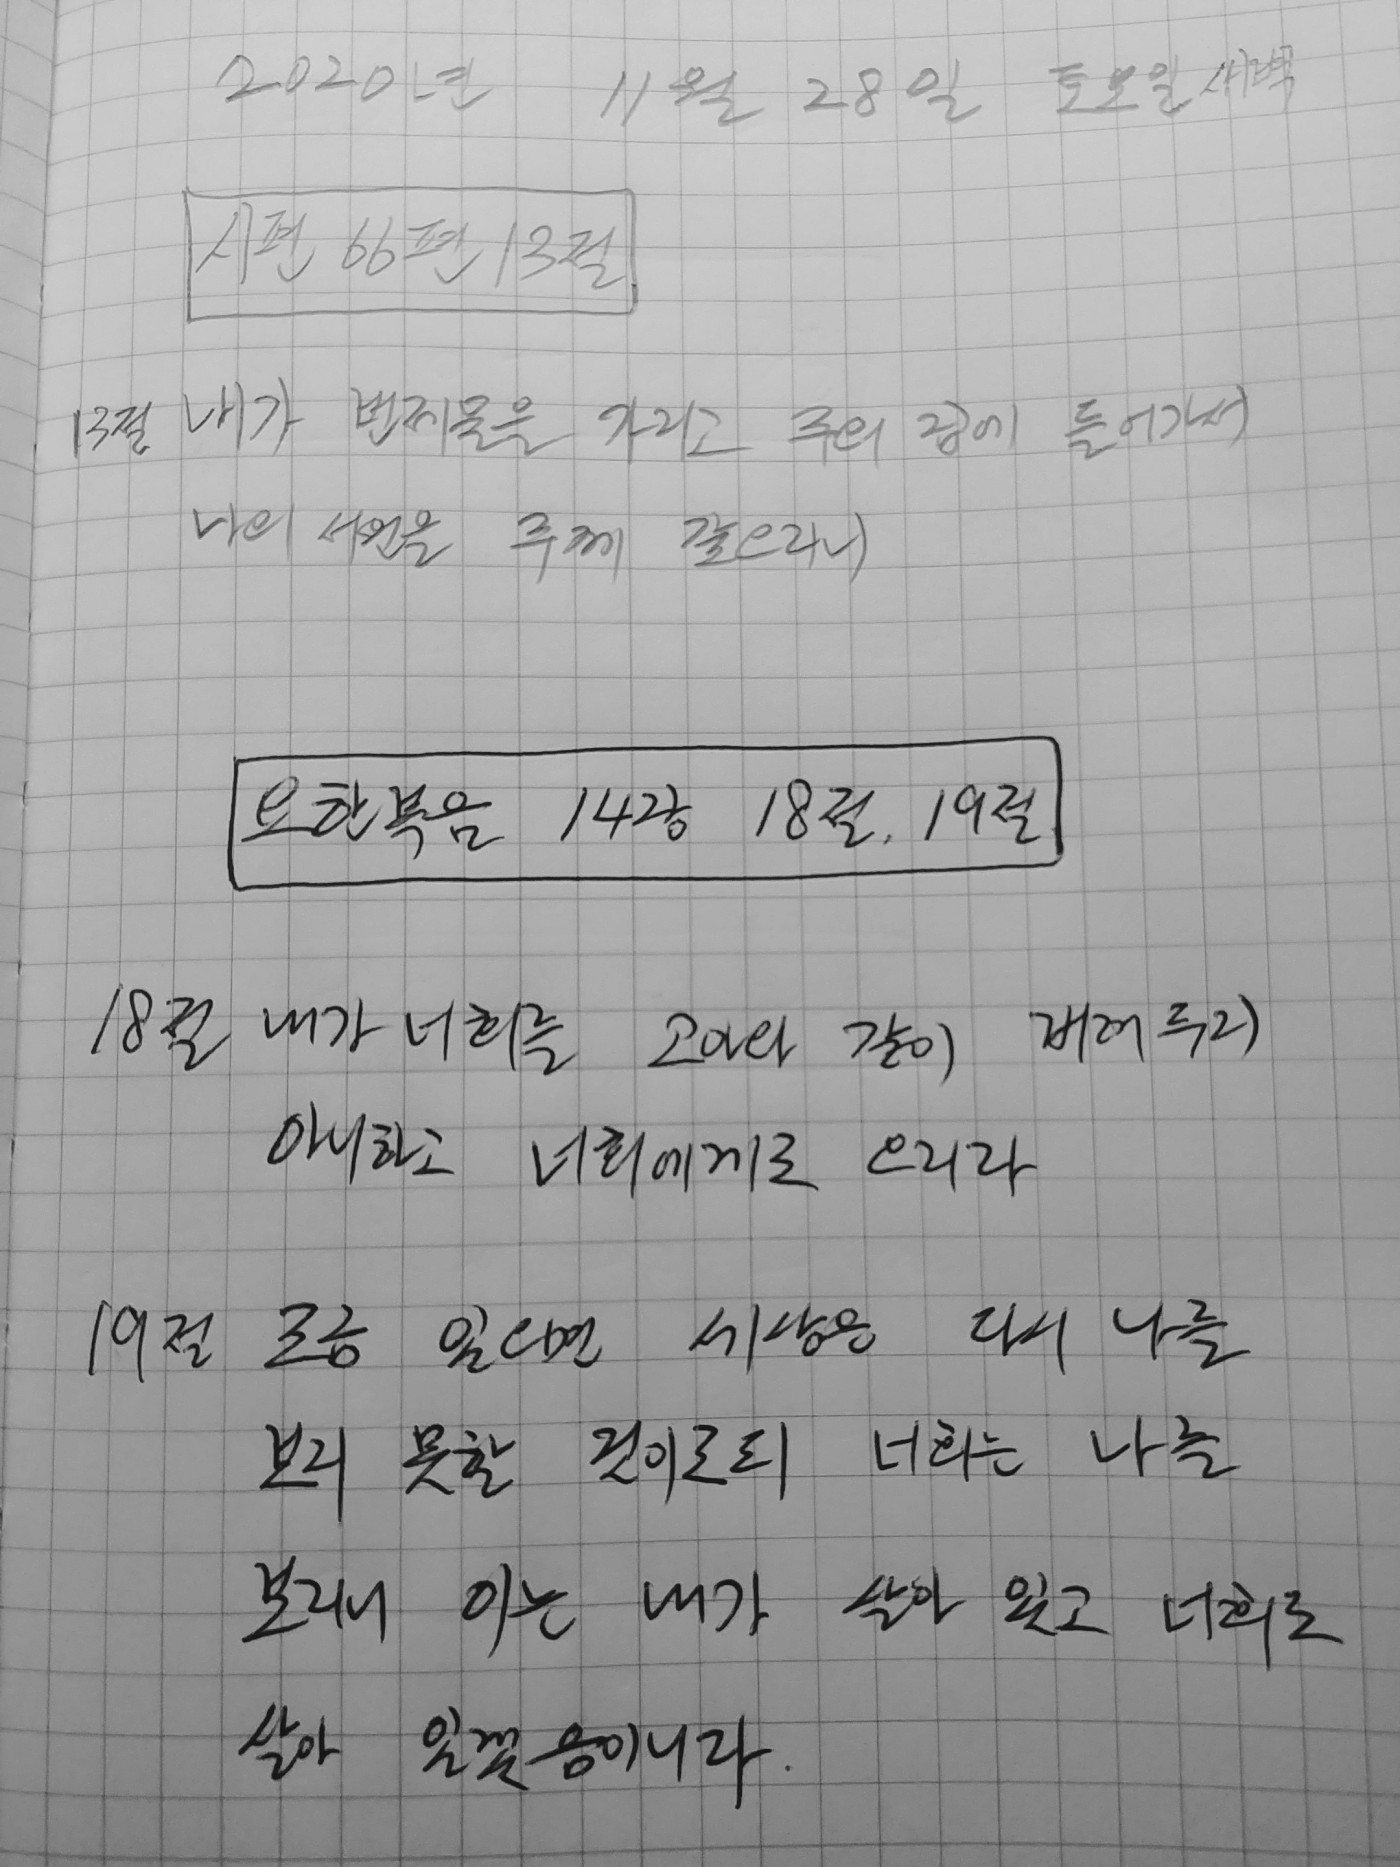 2020년 11월 28일 토요일 새벽
시편 66편 13절
13절 내가 번제물을 가지고 주의 집에 들어가서
나의 서원을 주께 갚으리니
요한복음 14장 18절, 19절
18절 내가 너희를 고아와 같이 버려두지
아니하고 너희에게로 오리라
19절 조금 있으면 세상은 다시 나를
보지 못할 것이로되 너희는 나를
보리니 이는 내가 살아 있고 너희도
살아 있겠음이니라.